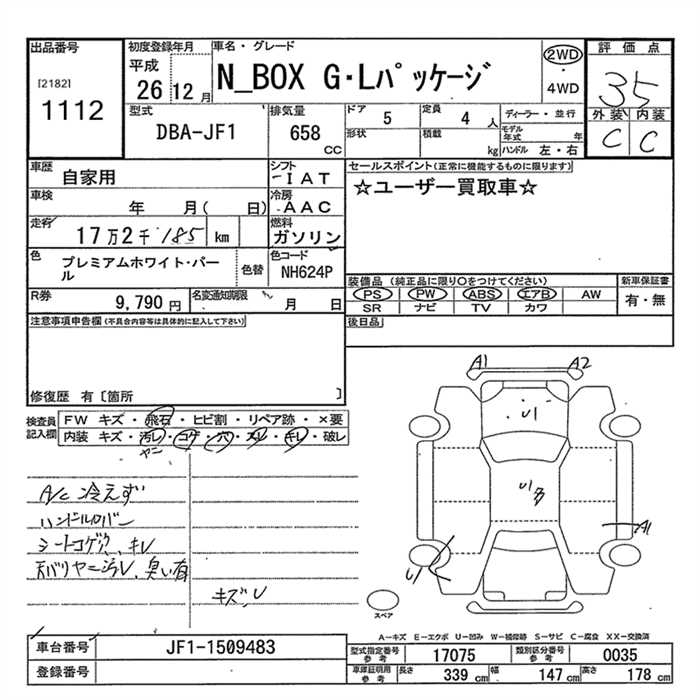 出品番号
[2182]
1112
初度登録年月
平成
26 12月
車名・グレード
N_BOX G・Lパッケージ
2WD
4WD
評価点
35
外装 内装
C C
型式
DBA-JF1
排気量
658
cc
ドア 5
定員 4 人
形状
積載 kg
ディーラー・並行
モデル年式 年
ハンドル 左・右
車歴
自家用
シフト
IAT
車検
年 月( 日)
冷房
AAC
走行
17万2千185 km
燃料
ガソリン
色
プレミアムホワイト・パール
色替
色コード
NH624P
R券
9,790 円
名変通知期限
月 日
セールスポイント(正常に機能するものに限ります)
☆ユーザー買取車☆
装備品 (純正品に限り〇をつけてください)
PS PW ABS エアB AW
SR ナビ TV カワ
新車保証書
有・無
後日品
注意事項申告欄(不具合内容等は具体的に記入して下さい)
修復歴 有〔箇所 〕
検査員
記入欄
FW キズ・飛石・ヒビ割・リペア跡・×要
内装 キズ・汚レ・コゲ・穴・スレ・キレ・破レ
ヤニ
A/C 冷えず
シートコゲ穴、キレ
天バリヤニ汚レ、臭い有
キズ、U
A1 A2
U1
U1
A1
U1
スペア
A-キズ E-エクボ U-凹み W-補修跡 S-サビ C-腐食 XX-交換済
車台番号
JF1-1509483
登録番号
型式指定番号
参考
17075
類別区分番号
参考
0035
車庫証明用
参考
長さ 339 cm
幅 147 cm
高さ 178 cm